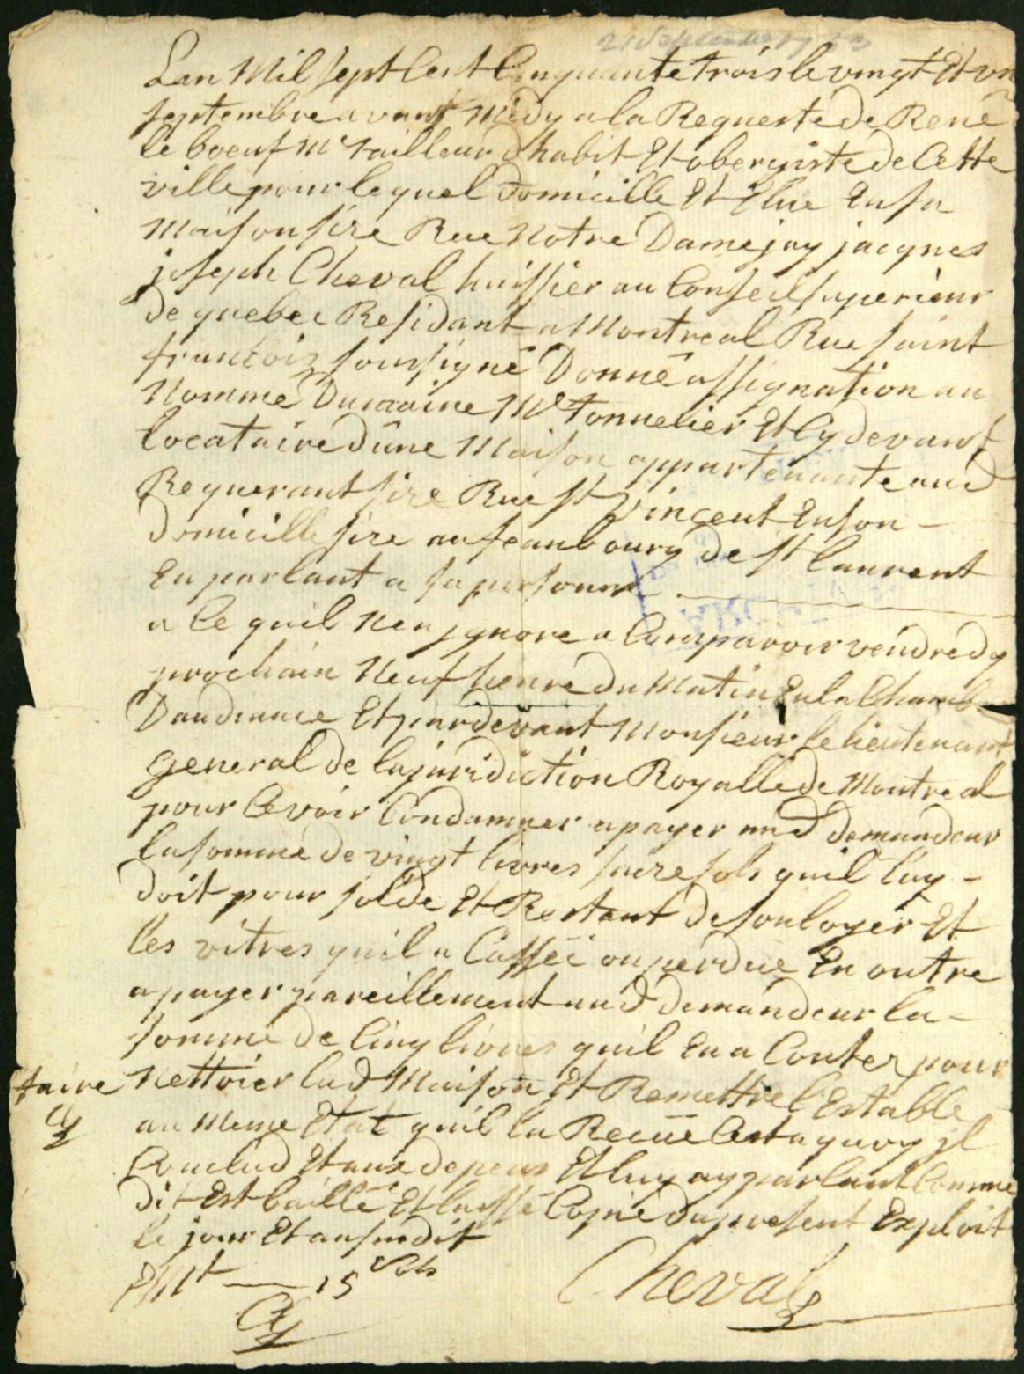 21 Septembre 1753
Lan Mil sept Cent Cinquante trois le vingt Et un
septembre avant Midy a la Requeste de René
le boeuf Me tailleur d'habit Et obergiste de Cette
ville pour lequel domicille Et Elue En sa
Maison size Rue Notre Dame jay jacques
joseph Cheval huissier au Conseil superieur
de quebec Residant a Montreal Rue saint
francois soussigné Donné assignation au
Nommé Me tonnelier Et Cy devant
locataire d'une Maison appartenante aud
Requerant size Rue st vincent En son
domicille size au feaubourg de st laurent
En parlant a sa personne
a Ce quil Nen jgnore a Comparoir vendredy
prochain Neuf heure du Matin En la Chambre
Daudiance Et pardevant Monsieur le lieutenant
general de la juridiction Royalle de Montreal
pour Ce voir Condamner a payer aud demandeur
la somme de vingt livres saize sols quil luy
doit pour solde Et Restant de son loyer Et
les vitres quil a Cassée ou perdue En outre
a payer pareillement aud demandeur la
somme de Cinq livres quil En a Couter pour
faire Nettoier lad Maison Et Remettre l'Estable
au Meme Etat quil la Recüe Cest a quoy jl
Conclud Et aux depens Et luy ay parlant Comme
dit Est baillé Et laissé Copie du present Exploit
le jour Et an susdit
15 sols
Cheval